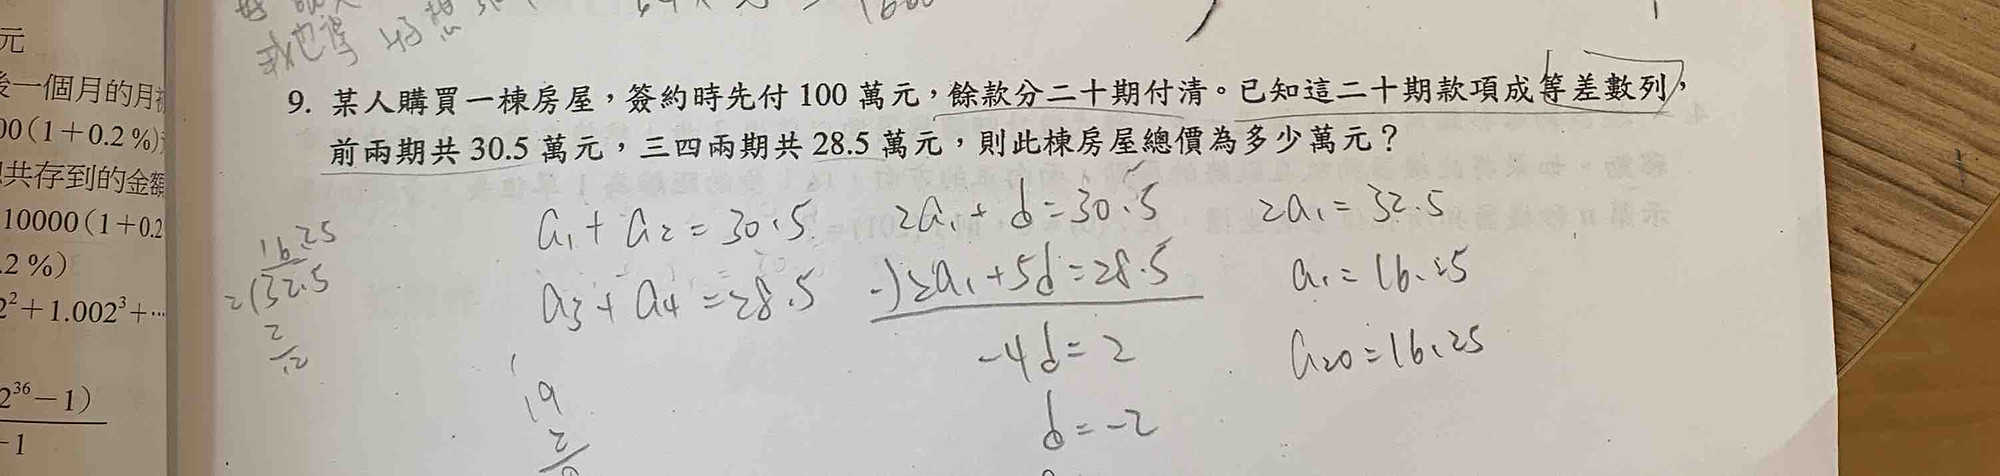 元
後一個月的月
00(1+0.2%)
共存到的金額
10000(1+0.2
.2%)
2²+1.002³+…
2³⁶−1)
−1
9. 某人購買一棟房屋，簽約時先付 100 萬元，餘款分二十期付清。已知這二十期款項成等差數列，
前兩期共 30.5 萬元，三四兩期共 28.5 萬元，則此棟房屋總價為多少萬元？
a₁+a₂=30.5 2a₁+d=30.5 2a₁=32.5
a₃+a₄=28.5 -)2a₁+5d=28.5 a₁=16.25
-4d=2 a₂₀=16.25
d=-2
16.25
2)32.5
2
12
19
2